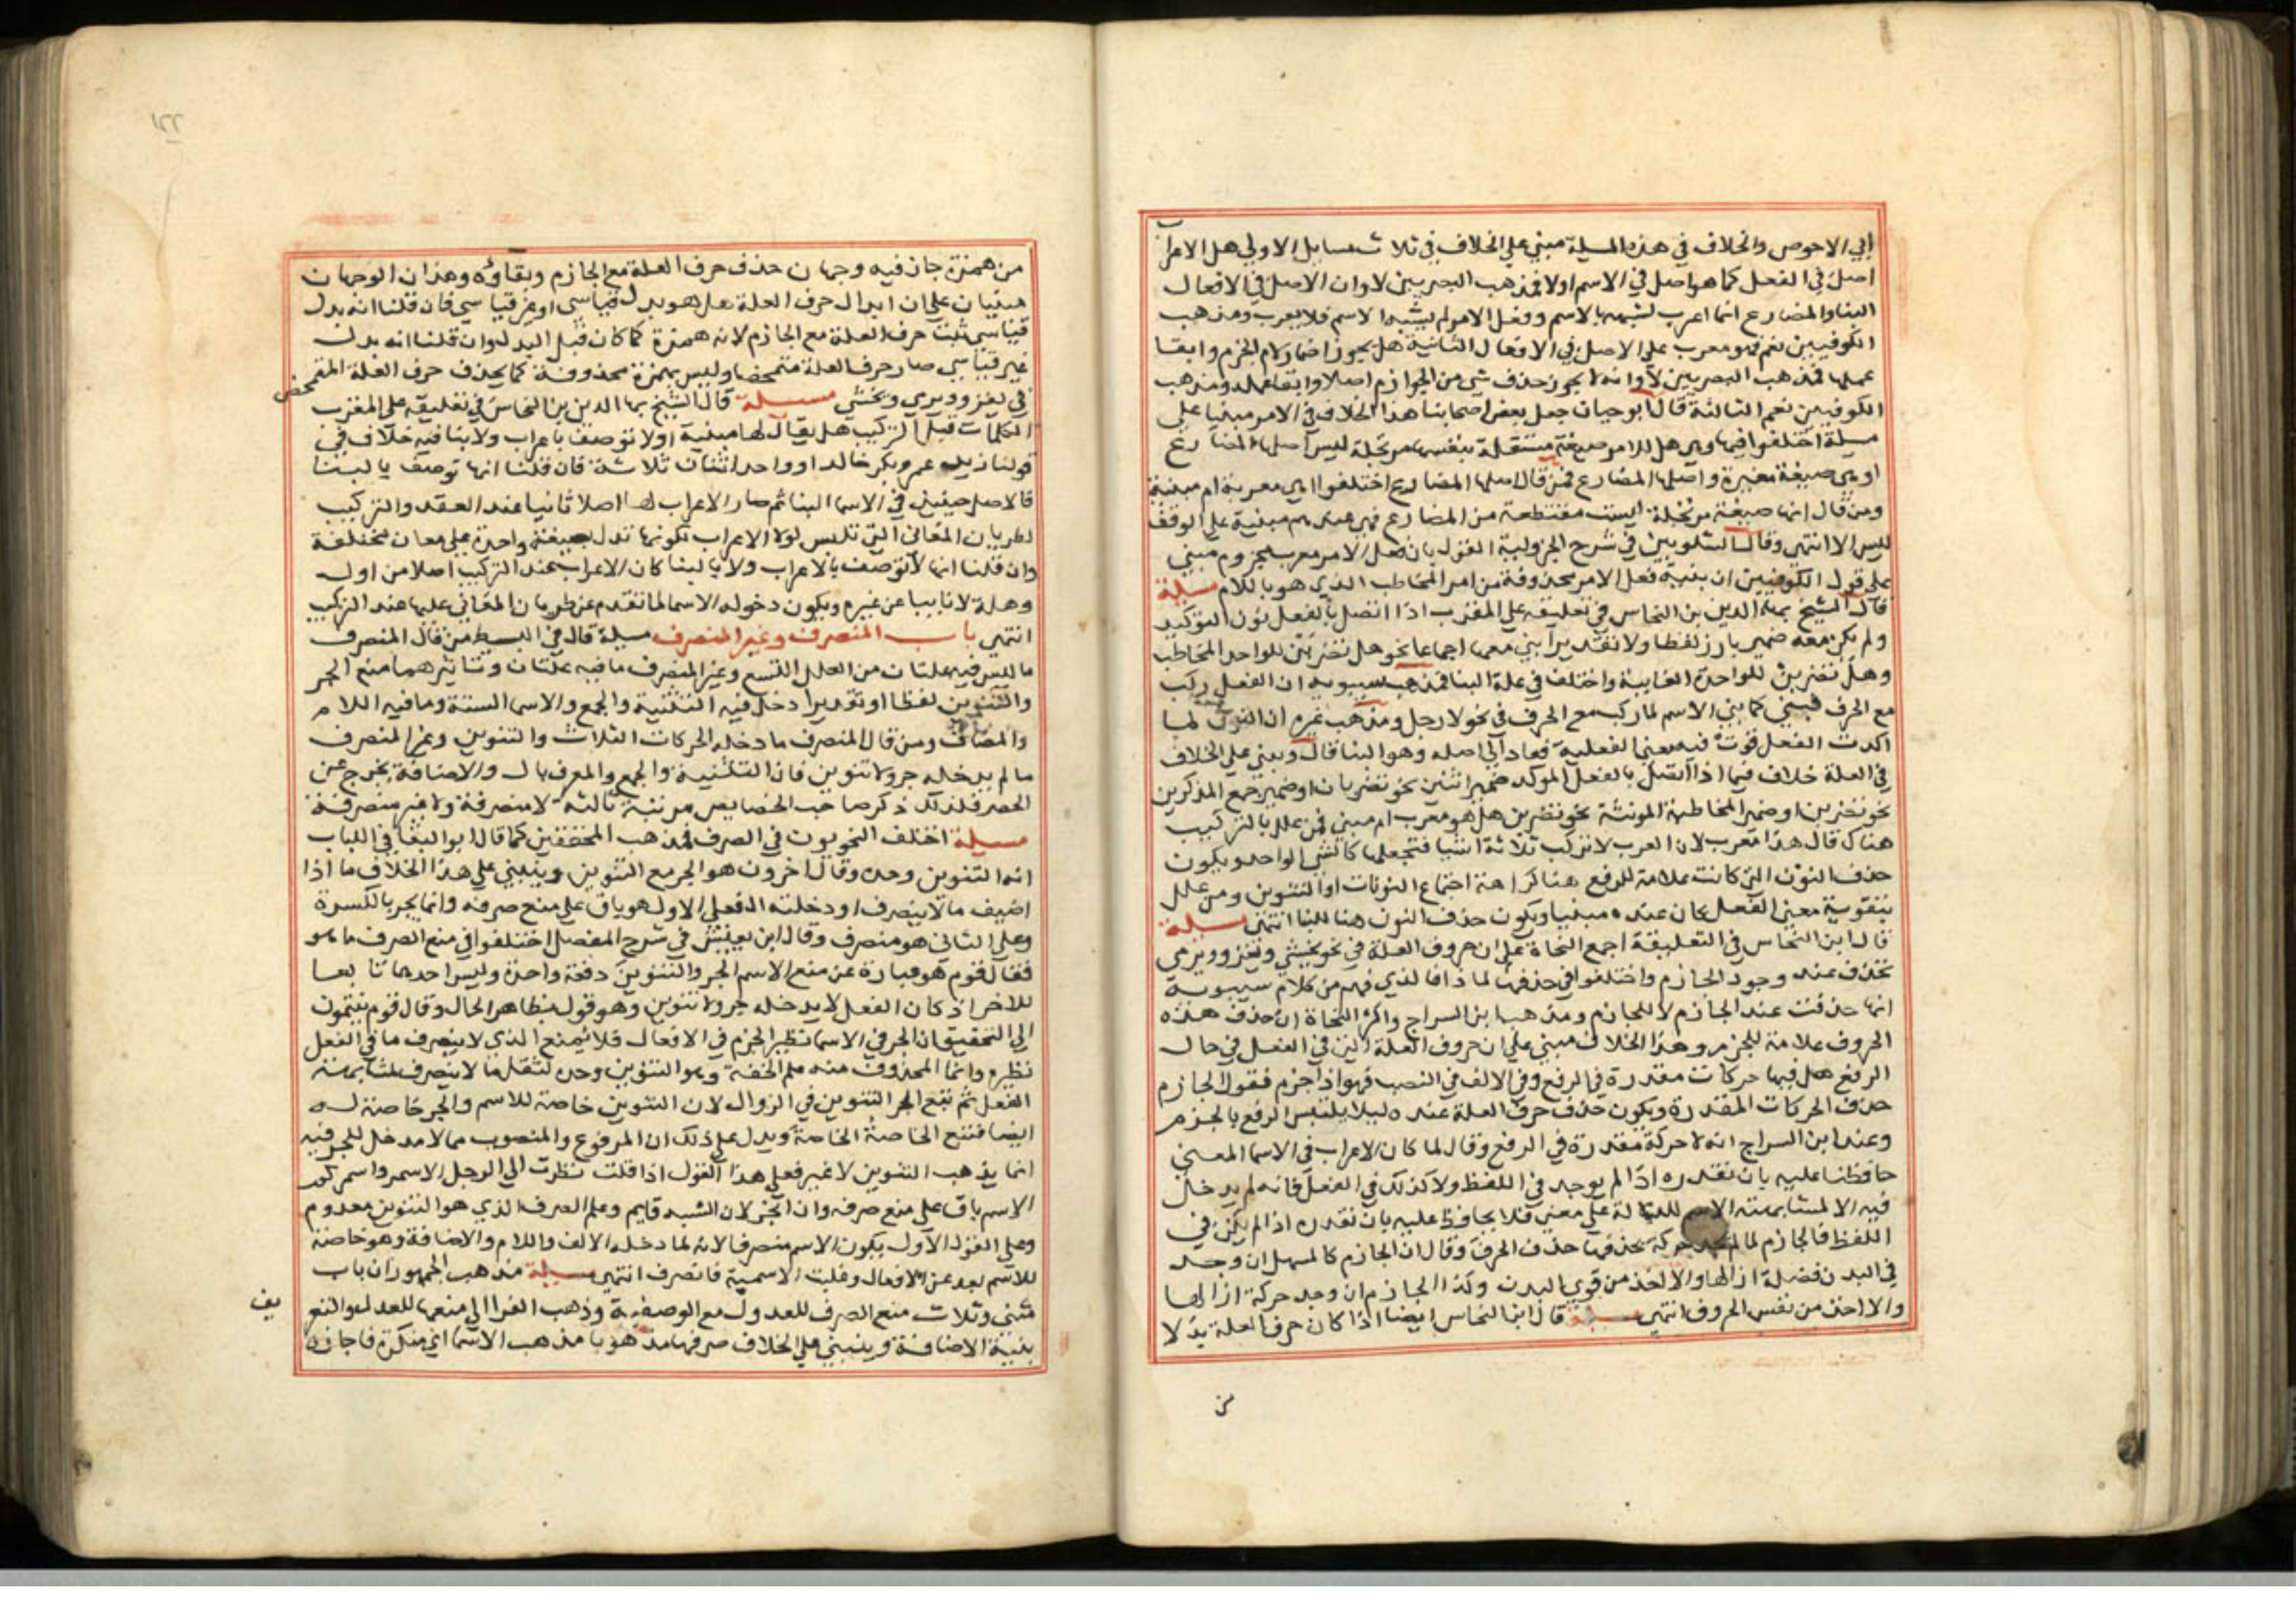 ابي الاحوص والخلاف في هذه المسيلة مبني علي الخلاف في ثلاث مسايل الاولي هل الاعراب
اصل في الفعل كما هو اصل في الاسم اولا فمذهب البصريين لا وان الاصل في الافعال
البنا والمضارع انما اعرب لشبهه بالاسم وفعل الامر لم يشبه الاسم فلا يعرب ومذهب
الكوفيين نعم فهو معرب علي الاصل في الافعال الثانية هل يجوز اضمار لام الجزم وابقا
عملها فمذهب البصريين لا وانه لا يجوز حذف شي من الجوازم اصلا وابقا عمله ومذهب
الكوفيين نعم الثالثة قال ابو حيان جعل بعض اصحابنا هذا الخلاف في الامر مبنيا علي
مسيلة اختلفوا فيها وهي هل للامر صيغة مستقلة بنفسها مرتجلة ليس اصلها المضارع
او هي صيغة مغيرة واصلها المضارع فمن قال اصلها المضارع اختلفوا اهي معربة ام مبنية
ومن قال انها صيغة مرتجلة ليست مقتطعة من المضارع فهي عندهم مبنية علي الوقف
ليس الا انتهي وقال الشلوبين في شرح الجزولية القول بان فعل الامر معرب مجزوم مبني
علي قول الكوفيين ان بنية فعل الامر محذوفة من امر المخاطب الذي هو باللام مسيلة
قال الشيخ بها الدين بن النحاس في تعليقه علي المقرب اذا اتصل بالفعل نون التوكيد
ولم يكن معه ضمير بارز لفظا ولا تقديرا بني معها اجماعا نحو هل تضربن للواحد المخاطب
وهل تضربن للواحدة الغايبة واختلف في علة البنا فمذهب سيبويه ان الفعل ركب
مع الحرف فبني كما بني الاسم لما ركب مع الحرف في نحو لا رجل ومذهب غيره ان النون لما
اكدت الفعل قوت فيه معني الفعلية فعاد الي اصله وهو البنا قال وبني علي الخلاف
في العلة خلاف فيما اذا اتصل بالفعل الموكد ضمير اثنين نحو تضربان او ضمير جمع المذكرين
نحو تضربن او ضمير المخاطبة المونثة نحو تضربن هل هو معرب ام مبني فمن علل بالتركيب
هناك قال هذا معرب لان العرب لا تركب ثلاثة اشيا فتجعلها كالشي الواحد ويكون
حذف النون التي كانت علامة للرفع هنا كراهة اجتماع النونات او التنوين ومن علل
بتقوية معني الفعل كان عنده مبنيا ويكون حذف النون هنا للبنا انتهي مسيلة
قال ابن النحاس في التعليقة اجمع النحاة علي ان حروف العلة في نحو يخشي ويغزو ويرمي
تحذف عند وجود الجازم واختلفوا في حذفها لماذا فالذي فهم من كلام سيبويه
انها حذفت عند الجازم لا للجازم ومذهب ابن السراج واكثر النحاة ان حذف هذه
الحروف علامة للجزم وهذا الخلاف مبني علي ان حروف العلة التي في الفعل في حال
الرفع هل فيها حركات مقدرة في الرفع وفي الالف في النصب فهو اذا جزم فقول الجازم
حذف الحركات المقدرة ويكون حذف حرف العلة عنده ليلا يلتبس الرفع بالجزم
وعند ابن السراج انه لا حركة مقدرة في الرفع وقال لما كان الاعراب في الاسما لمعني
حافظنا عليه بان نقدره اذا لم يوجد في اللفظ ولا كذلك في الفعل فانه لم يدخل
فيه الا لمشابهته الاسم للدلالة علي معني فلا يحافظ عليه بان نقدره اذا لم يكن في
اللفظ فالجازم لما لم يجد حركة يحذفها حذف الحرف وقال ان الجازم كالمسهل ان وجد
في البدن فضلة ازالها والا اخذ من قوي البدن وكذا الجازم ان وجد حركة ازالها
والا اخذ من نفس الحروف انتهي مسيلة قال ابن النحاس ايضا اذا كان حرف العلة بدلا
من
١٢٢
من همزة جاز فيه وجهان حذف حرف العلة مع الجازم وبقاؤه وهذان الوجهان
مبنيان علي ان ابدال حرف العلة هل هو بدل قياسي او غير قياسي فان قلنا انه بدل
قياسي ثبت حرف العلة مع الجازم لانه همزة كما كان قبل البدل وان قلنا انه بدل
غير قياسي صار حرف العلة متمحضا وليس بهمزة محذوفة كما يحذف حرف العلة المتمحض
في يغزو ويرمي ويخشي مسيلة قال الشيخ بها الدين بن النحاس في تعليقه علي المقرب
الكلمات قبل التركيب هل يقال لها مبنية او لا توصف باعراب ولا بنا فيه خلاف في
قولنا زيد عمرو بكر خالد او واحد اثنان ثلاثة فان قلنا انها توصف بالبنا
فالاصل حينيذ في الاسما البنا ثم صار الاعراب لها اصلا ثانيا عند العقد والتركيب
لطريان المعاني التي تلبس لولا الاعراب لكونها تدل بصيغة واحدة علي معان مختلفة
وان قلنا انها لا توصف بالاعراب ولا بالبنا كان الاعراب عند التركيب اصلا من اول
وهلة لا نايبا عن غيره ويكون دخوله الاسما لما تقدم عن طريان المعاني عليها عند التركيب
انتهي باب المنصرف وغير المنصرف مسيلة قال في البسيط من قال المنصرف
ما ليس فيه علتان من العلل التسع وغير المنصرف ما فيه علتان وتاثيرهما منع الجر
والتنوين لفظا او تقديرا دخل فيه التثنية والجمع والاسما الستة وما فيه اللام
والمضاف ومن قال المنصرف ما دخله الحركات الثلاث والتنوين وغير المنصرف
ما لم يدخله جر ولا تنوين فان التثنية والجمع والمعرف بال والاضافة يخرج عن
الحصر فلذلك ذكر صاحب الخصايص مرتبة ثالثة لا منصرفة ولا غير منصرفة
مسيلة اختلف النحويون في الصرف فمذهب المحققين كما قال ابو البقا في اللباب
انه التنوين وحده وقال اخرون هو الجر مع التنوين وينبني علي هذا الخلاف ما اذا
اضيف ما لا ينصرف او دخلته ال فعلي الاول هو باق علي منع صرفه وانما يجر بالكسرة
وعلي الثاني هو منصرف وقال ابن يعيش في شرح المفصل اختلفوا في منع الصرف ما هو
فقال قوم هو عبارة عن منع الاسم الجر والتنوين دفعة واحدة وليس احدهما تابعا
للاخر اذ كان الفعل لا يدخله جر ولا تنوين وهو قول بظاهر الحال وقال قوم ينتمون
الي التحقيق ان الجر في الاسما نظير الجزم في الافعال فلا يمنع الذي لا ينصرف ما في الفعل
نظيره وانما المحذوف منه علم الخفة وهو التنوين وحده لثقل ما لا ينصرف لمشابهته
الفعل ثم تبع الجر التنوين في الزوال لان التنوين خاصة للاسم والجر خاصة له
ايضا فتتبع الخاصة الخاصة ويدل علي ذلك ان المرفوع والمنصوب مما لا مدخل للجر فيه
انما يذهب التنوين لا غير فعلي هذا القول اذا قلت نظرت الي الرجل الاسمر واسمركم
الاسم باق علي منع صرفه وان انجر لان الشبه قايم وعلم الصرف الذي هو التنوين معدوم
وعلي القول الاول يكون الاسم منصرفا لانه لما دخله الالف واللام والاضافة وهو خاصة
للاسم بعد عن الافعال وغلبت الاسمية فانصرف انتهي مسيلة مذهب الجمهور ان باب
مثني وثلاث منع الصرف للعدول مع الوصفية وذهب الفرا الي منعها للعدل والتعريف
بنية الاضافة وينبني علي الخلاف صرفها مذهوبا مذهب الاسما اي منكرة فاجازه